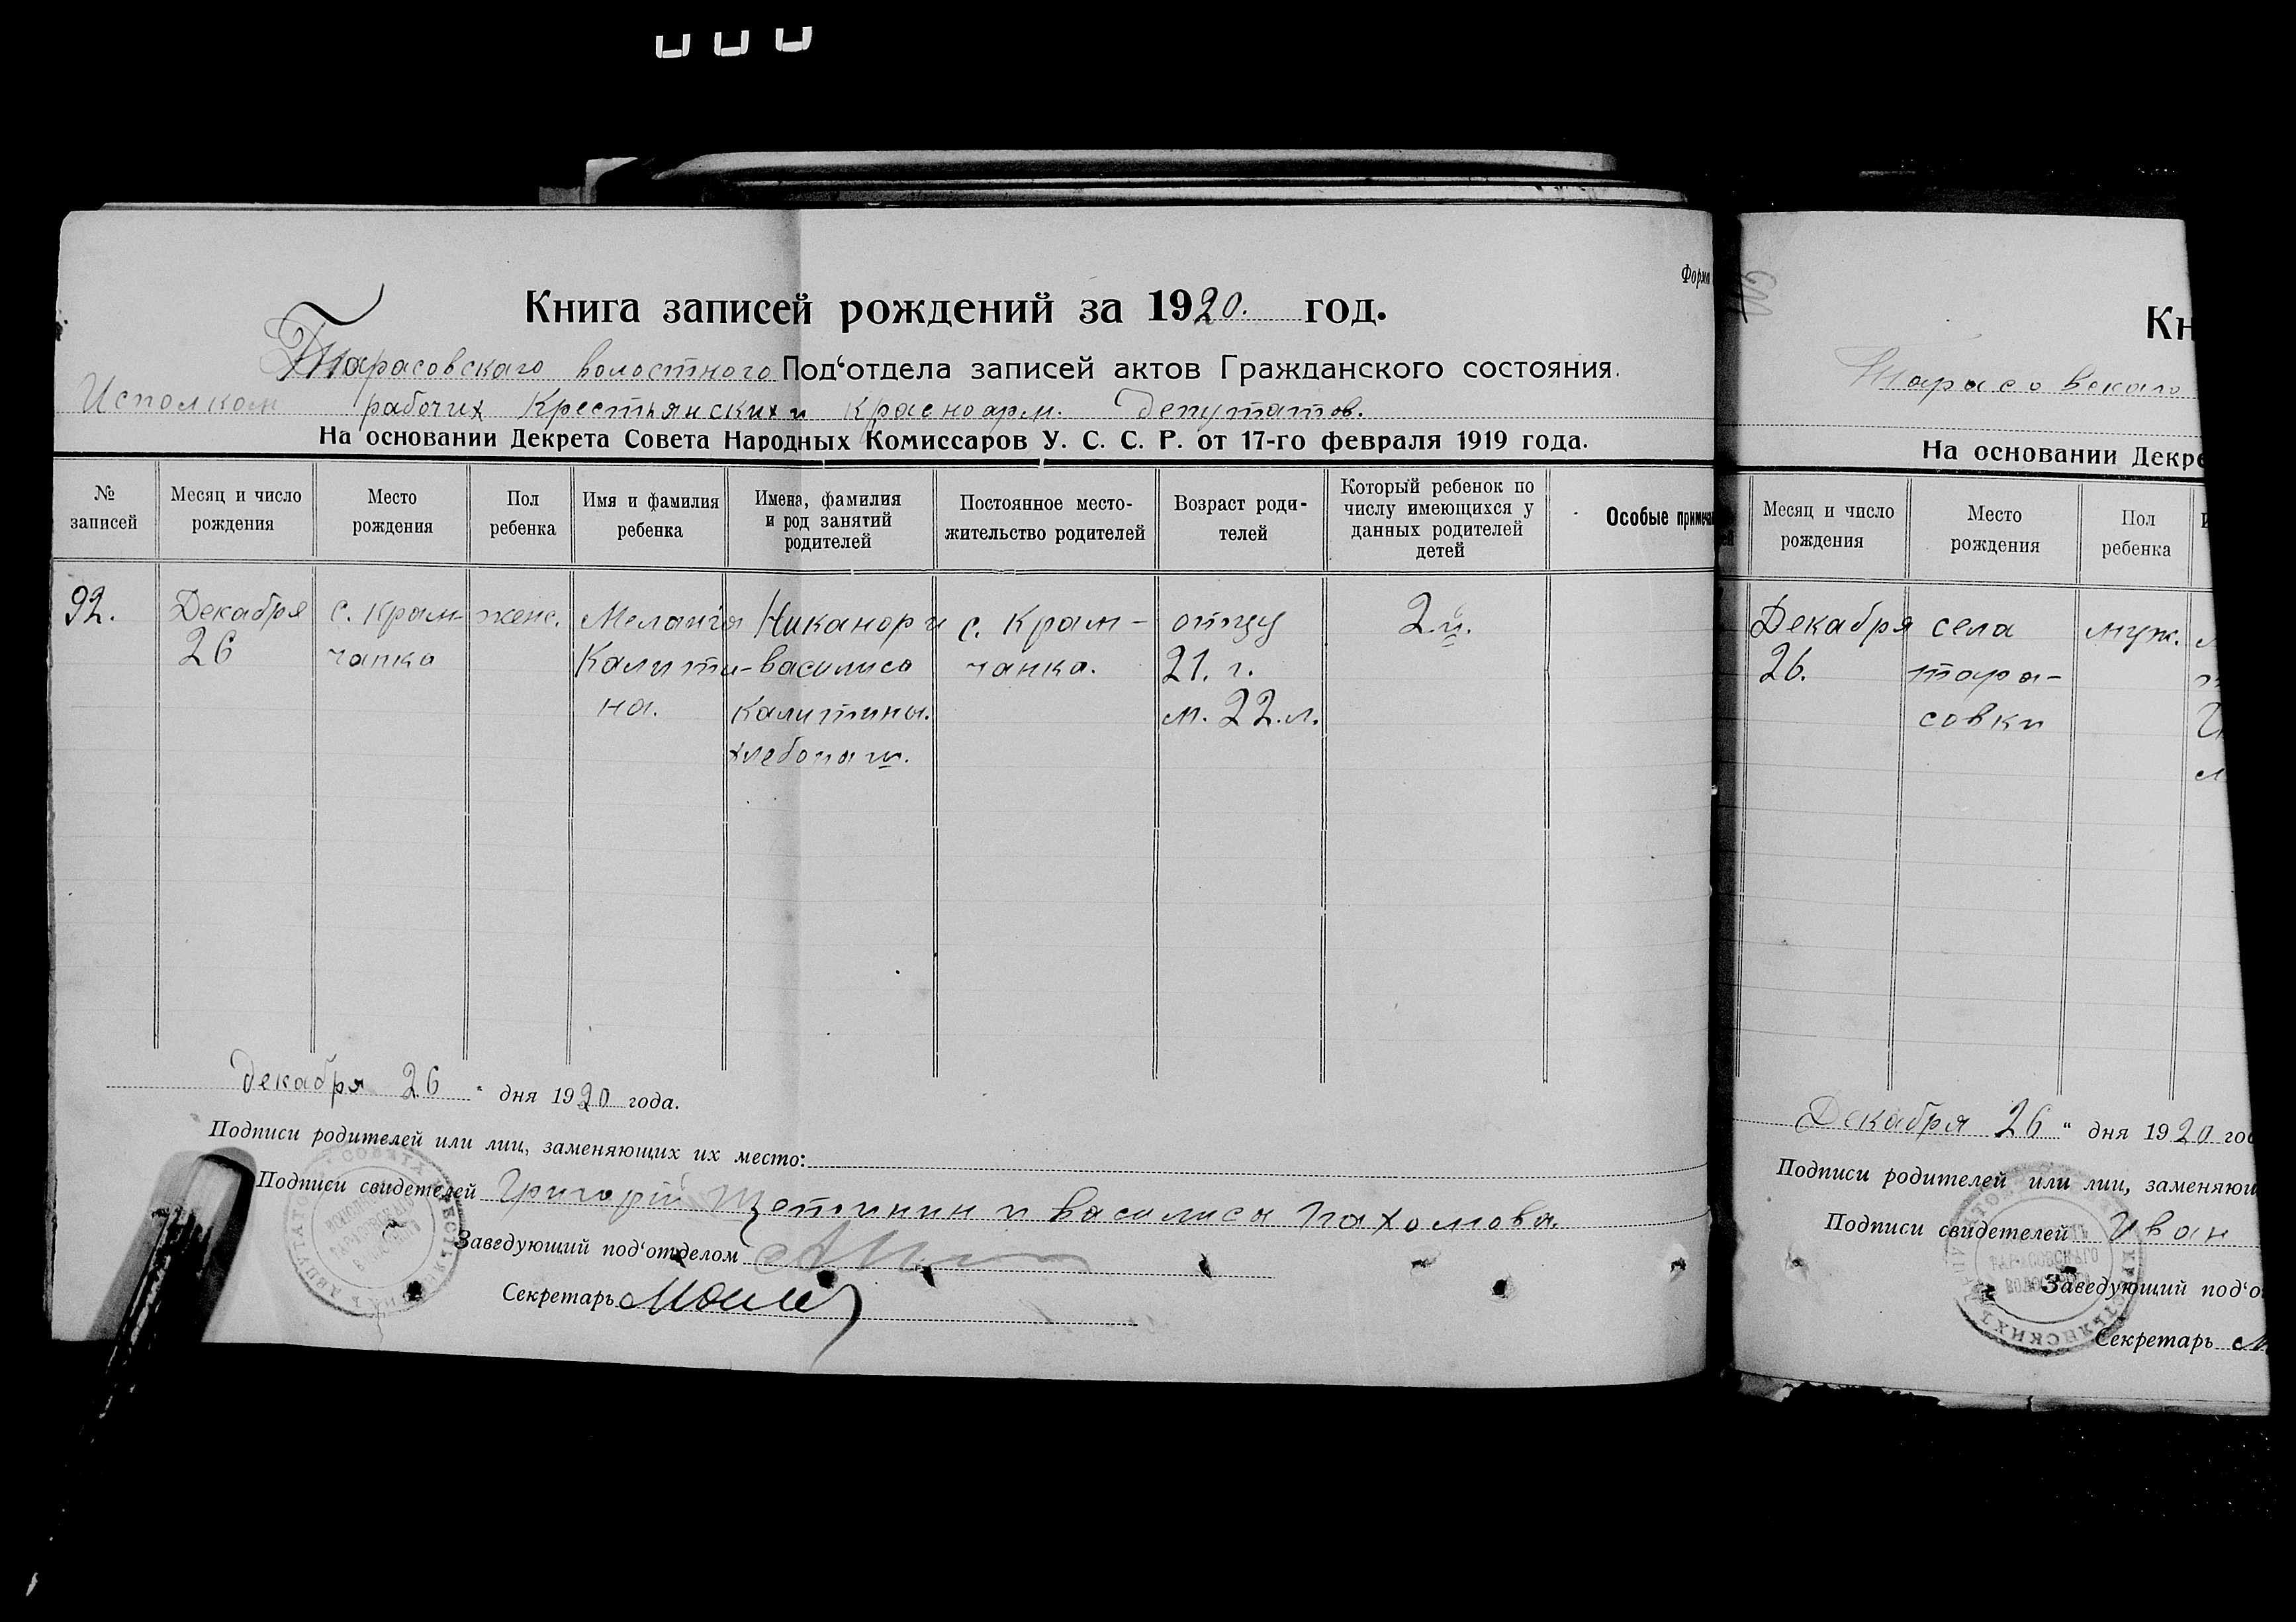 Форма
Книга записей рождений за 1920. год.
Тарасовского волостного Под‘отдела записей актов Гражданского состояния.
Исполком рабочих Крестьянских и Красноарм. Депутатов.
На основании Декрета Совета Народных Комиссаров У. С. С. Р. от 17-го февраля 1919 года.
№ записей
Месяц и число рождения
Место рождения
Пол ребенка
Имя и фамилия ребенка
Имена, фамилия и род занятий родителей
Постоянное место-жительство родителей
Возраст роди-телей
Который ребенок по числу имеющихся у данных родителей детей
Особые примеча
92.
Декабря
26
с. Крам-
чанка
женс.
Мелания
Калити-
на.
Никанор и
василиса
калитины.
хлебопаш.
с. Крам-
чанка.
отцу
21. г.
м. 22. л.
2й.
декабря 26 " дня 1920 года.
Подписи родителей или лиц, заменяющих их место:
Подписи свидетелей Григорій Щетинин и василиса Пахомова.
Заведующий под‘отделом
Секретарь
Кн
Тарасовскаго
На основании Декре
Месяц и число рождения
Место рождения
Пол ребенка
Декабря
26.
села
тара-
совки
муж.
Декабря 26 " дня 1920 го
Подписи родителей или лиц, заменяющ
Подписи свидетелей Иван
ТАРАСОВСКАГО
Заведующий под‘о
Секретарь